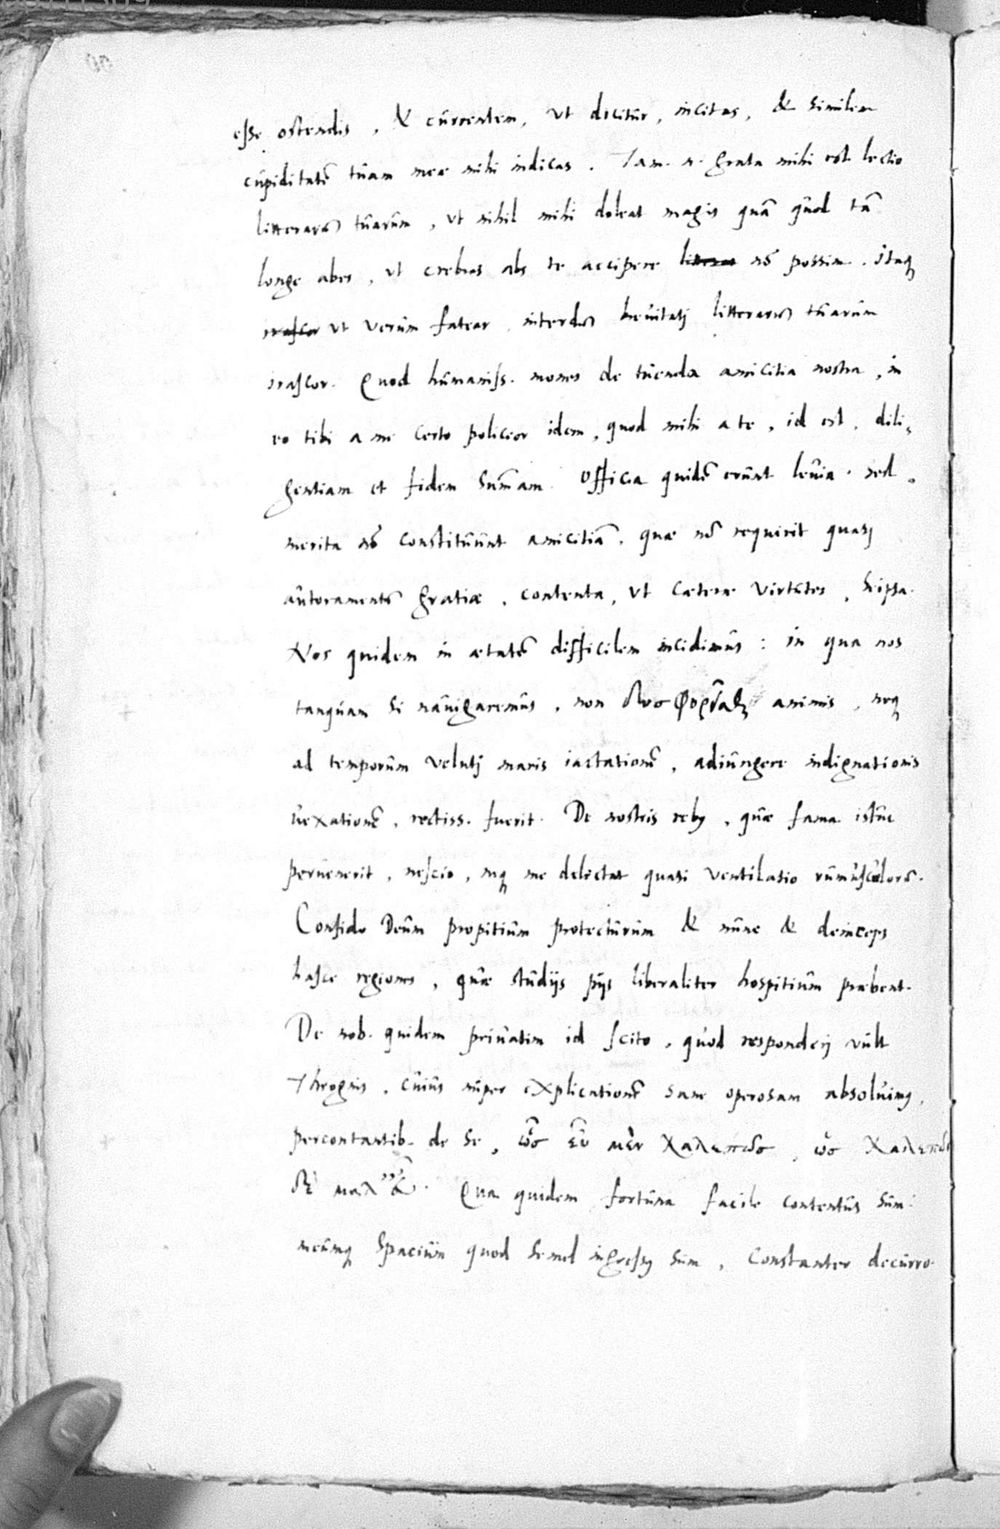 esse ostendis, & cûrrentem, ut dicitûr, incitas, & similem
cûpiditatē tûam meæ mihi indicas. Tam. n. grata mihi est lectio
litterarū tûarûm, ut nihil mihi doleat magis quā qûod tā
longe abes, ut crebras abs te accipere nō possim. Itaq
irascor ut verûm fatear interdū brevitatj litterarū tûarûm
irascor. Quod hûmaniss. mones de tûenda amicitia nostra, in
eo tibi a me certo policeor idem, quod mihi a te, id est, dili,
gentiam et fidem sum̄am. Officia quidē erûnt levia. sed
merita nō constitûûnt amicitiā. quæ nō requirit quasj
aûtoramentū gratiæ, contenta, ut cæteræ virtutes, seipsa.
Nos quidem in ætatē difficilem incidimûs: in qua nos
tanqûam si nâvigaremûs, non animis, neq
ad temporûm velutj maris iactationē, adiûngere indignationis
vexationē, rectiss. fuerit. De nostris reb9, qûæ fama istûc
pervenerit, nescio, neq me delectat quasi ventilatio rûmûscûlorū.
Confido Deûm propitiûm protectûrûm & nûnc & deinceps
hasce regiones, qûæ stûdijs pijs liberaliter hospitiûm præbent.
De nob. quidem privatim id scito, qûod responderj vûlt
Theognis, cûiûs nûper explicationē sane operosam absolvim9,
percontantib. de se, ὡς εὖ μὲν χαλεπῶς, ὡς χαλεπῶς
δὲ μάλ' εὖ. Qua quidem fortûna facile contentûs sûm:
meûmq spaciûm quod semel ingress9 sûm, constanter decûrro.